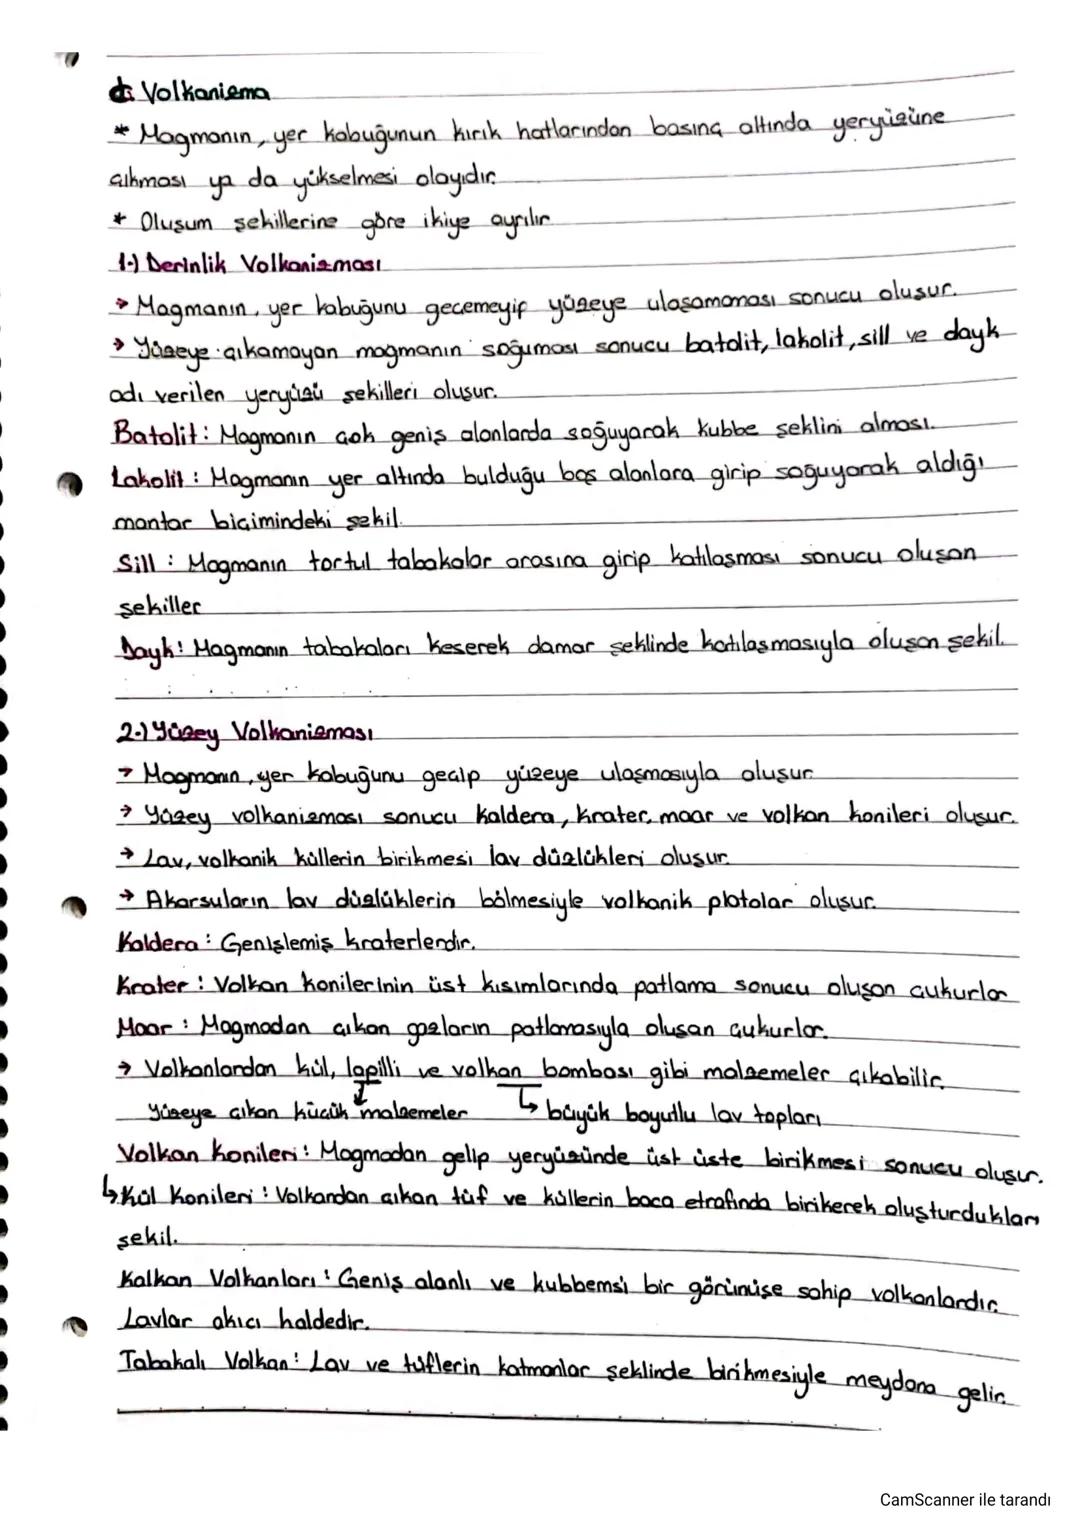 d. Volkanizma
* Magmanın, yer kabuğunun kırık hatlarından basınç altında yeryüzüne
çıkması ya da yükselmesi olayıdır.
* Oluşum şekillerine göre ikiye ayrılır
1-) Derinlik Volkanizması
→ Magmanın, yer kabuğunu geçemeyip yüzeye ulaşamaması sonucu oluşur.
→ Yüzeye çıkamayan magmanın soğuması sonucu batolit, lakolit, sill ve dayk
adı verilen yeryüzü şekilleri oluşur.
Batolit: Magmanın çok geniş alanlarda soğuyarak kubbe şeklini alması.
Lakolit: Magmanın yer altında bulduğu boş alanlara girip soğuyarak aldığı
mantar biçimindeki şekil.
Sill: Magmanın tortul tabakalar arasına girip katılaşması sonucu oluşan
şekiller
Dayk: Magmanın tabakaları keserek damar şeklinde katılaşmasıyla oluşan şekil.
2-) Yüzey Volkanizması
→ Magmanın, yer kabuğunu geçip yüzeye ulaşmasıyla oluşur
→ Yüzey volkanizması sonucu kaldera, krater, maar ve volkan konileri oluşur.
→ Lav, volkanik küllerin birikmesi lav düzlükleri oluşur.
→ Akarsuların lav düzlüklerin bölmesiyle volkanik platolar oluşur.
Kaldera: Genişlemiş kraterlerdir.
Krater: Volkan konilerinin üst kısımlarında patlama sonucu oluşan çukurlar
Maar: Magmadan çıkan gazların patlamasıyla oluşan çukurlar.
→ Volkanlardan kül, lapilli ve volkan bombası gibi malzemeler çıkabilir.
Yüzeye çıkan küçük malzemeler ↳ büyük boyutlu lav topları
Volkan Konileri: Magmadan gelip yeryüzünde üst üste birikmesi sonucu oluşur.
↳ Kül Konileri: Volkandan çıkan tüf ve küllerin baca etrafında birikerek oluşturdukları
şekil.
Kalkan Volkanları: Geniş alanlı ve kubbemsi bir görünüşe sahip volkanlardır.
Lavlar akıcı haldedir.
Tabakalı Volkan: Lav ve tüflerin katmanlar şeklinde birikmesiyle meydana gelir.
CamScanner ile tarandı